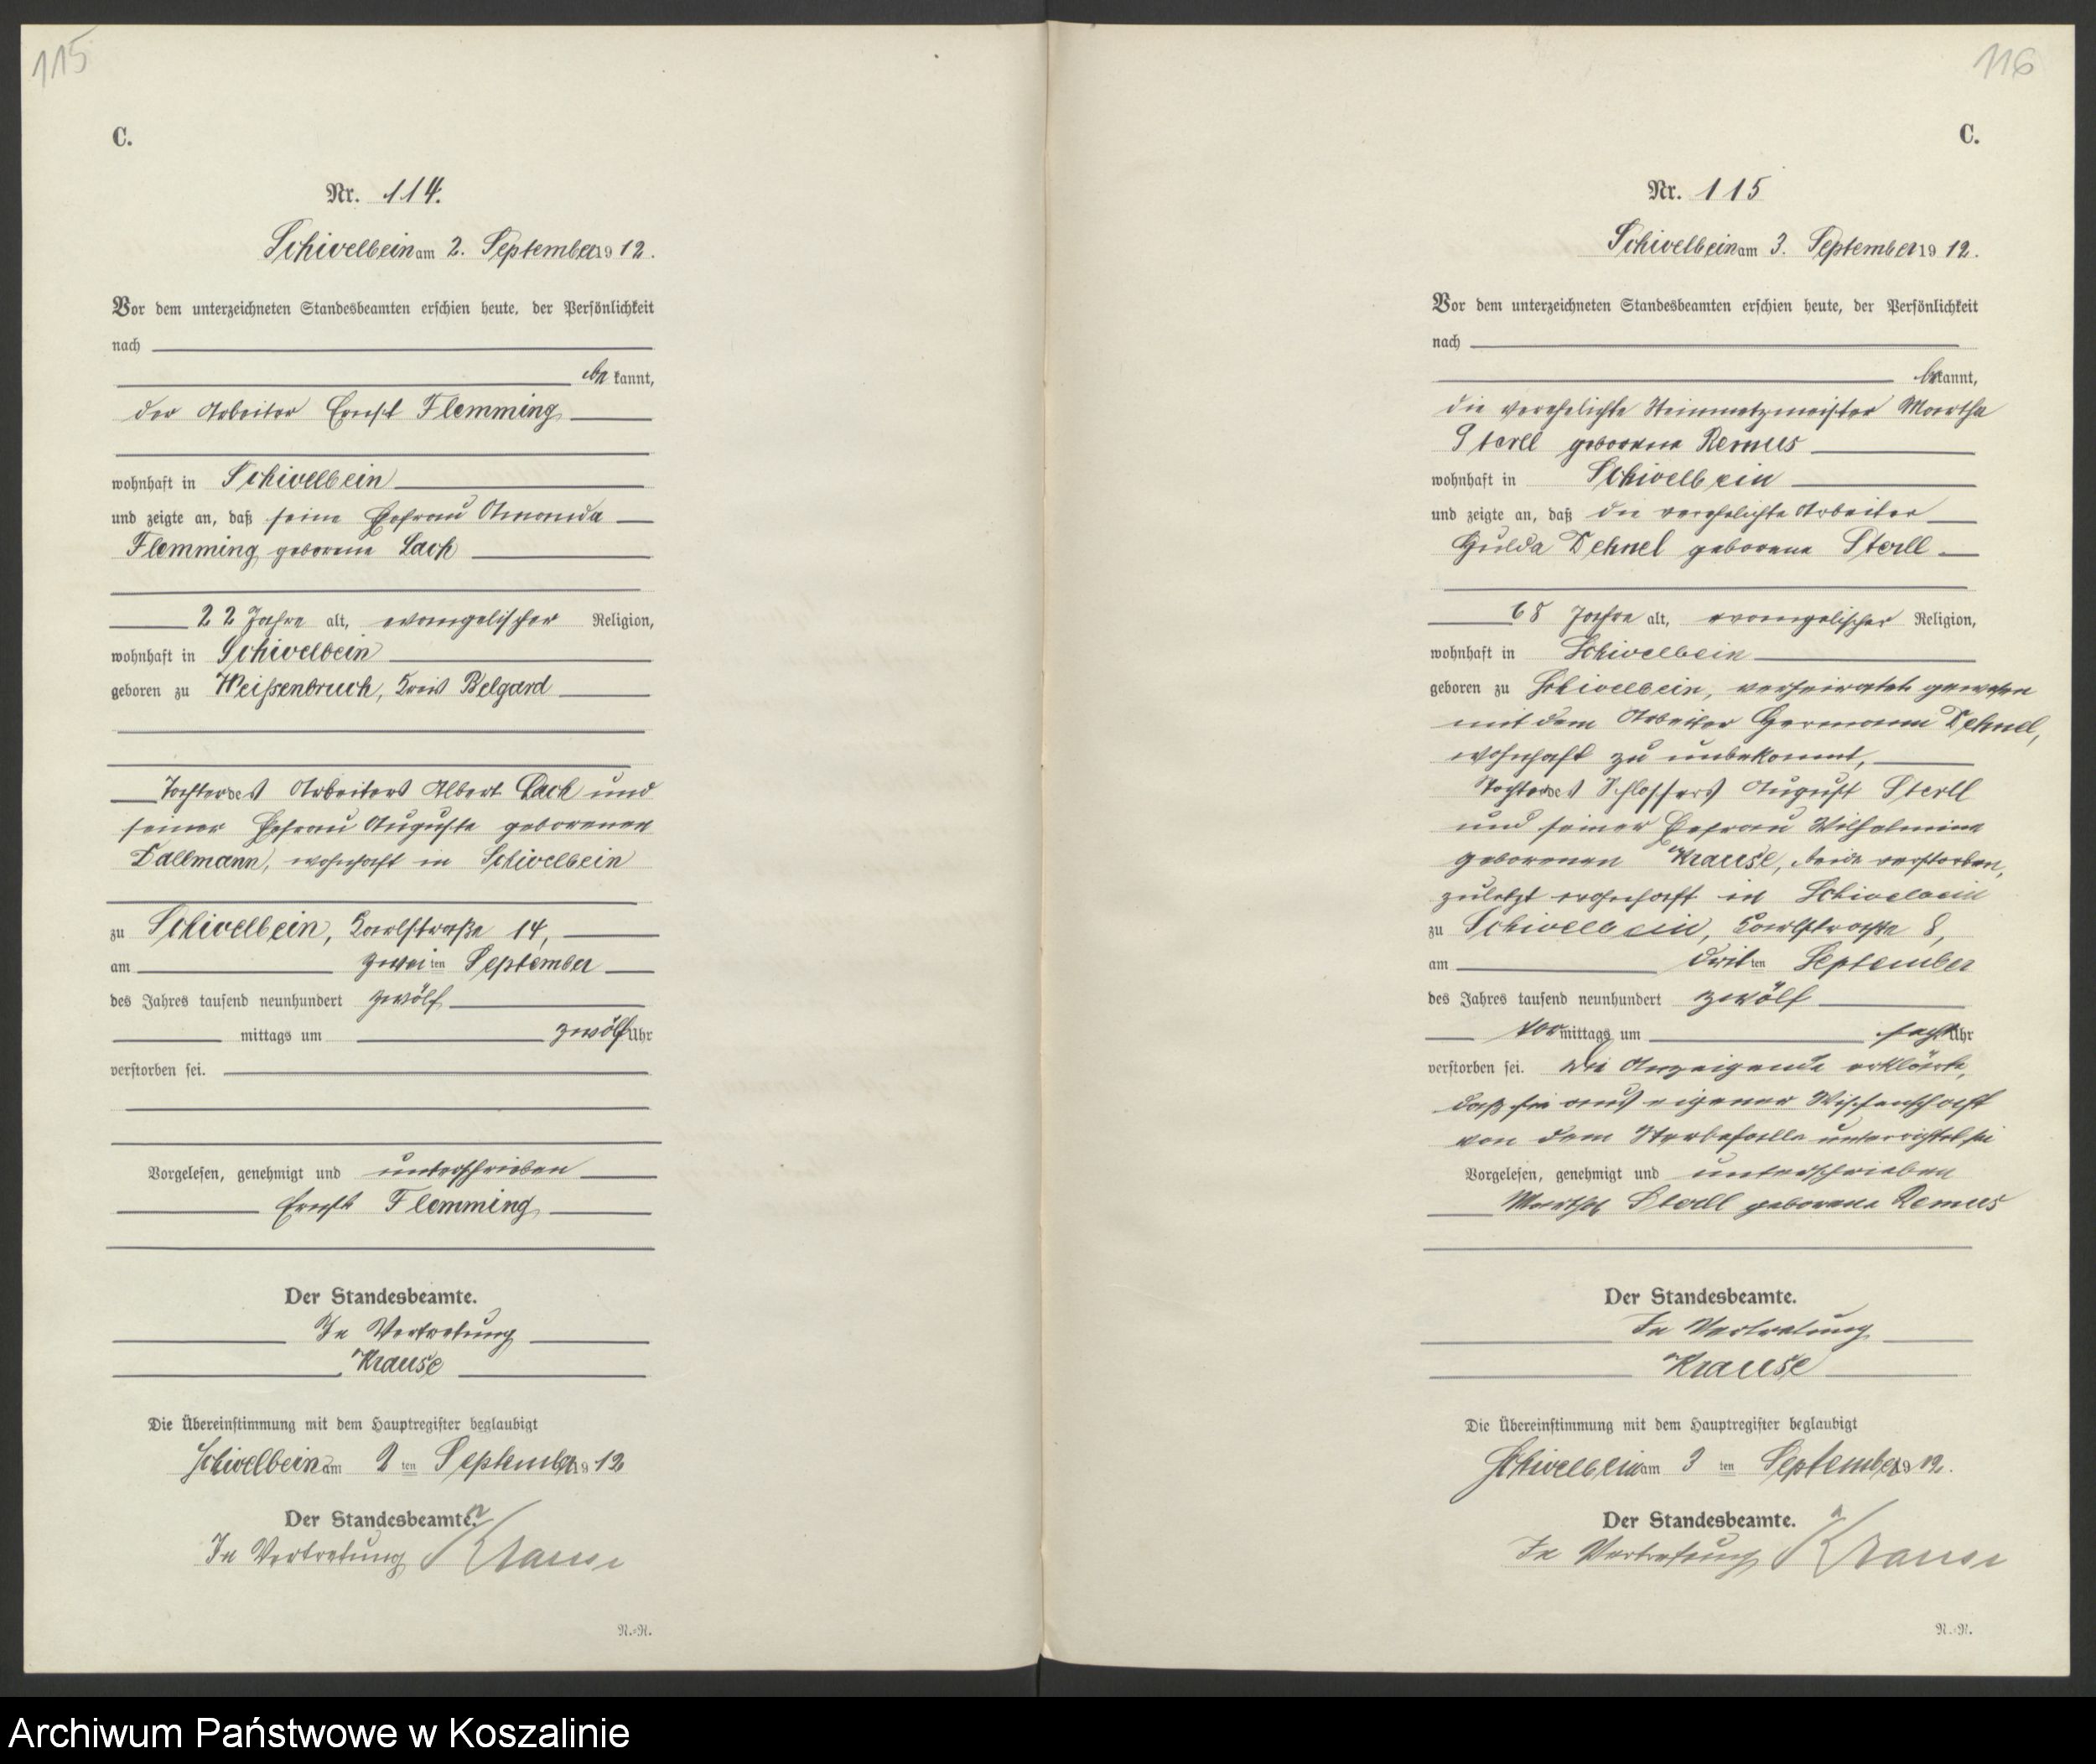 115
C.
Nr. 114.
Schivelbein am 2. September 1912.
Vor dem unterzeichneten Standesbeamten erschien heute, der Persönlichkeit
nach
bekannt,
der Arbeiter Ernst Flemming
wohnhaft in Schivelbein
und zeigte an, daß seine Ehefrau Amanda
Flemming geborene Lach
22 Jahre alt, evangelischer Religion,
wohnhaft in Schivelbein
geboren zu Weißenbruch, Kreis Belgard
Tochter des Arbeiters Albert Lach und
seiner Ehefrau Auguste geborenen
Dallmann, wohnhaft in Schivelbein
zu Schivelbein, Karlstraße 14,
am zweiten September
des Jahres tausend neunhundert zwölf
mittags um zwölf Uhr
verstorben sei.
Vorgelesen, genehmigt und unterschrieben
Ernst Flemming
Der Standesbeamte.
In Vertretung
Krause
Die Übereinstimmung mit dem Hauptregister beglaubigt
Schivelbein am 2ten September 1912
Der Standesbeamte.
In Vertretung Krause
N.-N.
116
C.
Nr. 115
Schivelbein am 3. September 1912.
Vor dem unterzeichneten Standesbeamten erschien heute, der Persönlichkeit
nach
bekannt,
die verehelichte Steinmetzmeister Martha
Sterll geborene Remus
wohnhaft in Schivelbein
und zeigte an, daß die verehelichte Arbeiter
Hulda Dehnel geborene Sterll
68 Jahre alt, evangelischer Religion,
wohnhaft in Schivelbein
geboren zu Schivelbein, verheiratet gewesen
mit dem Arbeiter Hermann Dehnel,
wohnhaft zu unbekannt,
Tochter des Schlossers August Sterll
und seiner Ehefrau Wilhelmine
geborenen Krause, beide verstorben,
zuletzt wohnhaft in Schivelbein
zu Schivelbein, Karlstraße 8,
am dritten September
des Jahres tausend neunhundert zwölf
vormittags um sechs Uhr
verstorben sei. Die Anzeigende erklärte,
daß sie aus eigener Wissenschaft
von dem Sterbefalle unterrichtet sei
Vorgelesen, genehmigt und unterschrieben
Martha Sterll geborene Remus
Der Standesbeamte.
In Vertretung
Krause
Die Übereinstimmung mit dem Hauptregister beglaubigt
Schivelbein am 3ten September 1912.
Der Standesbeamte.
In Vertretung Krause
N.-N.
Archiwum Państwowe w Koszalinie